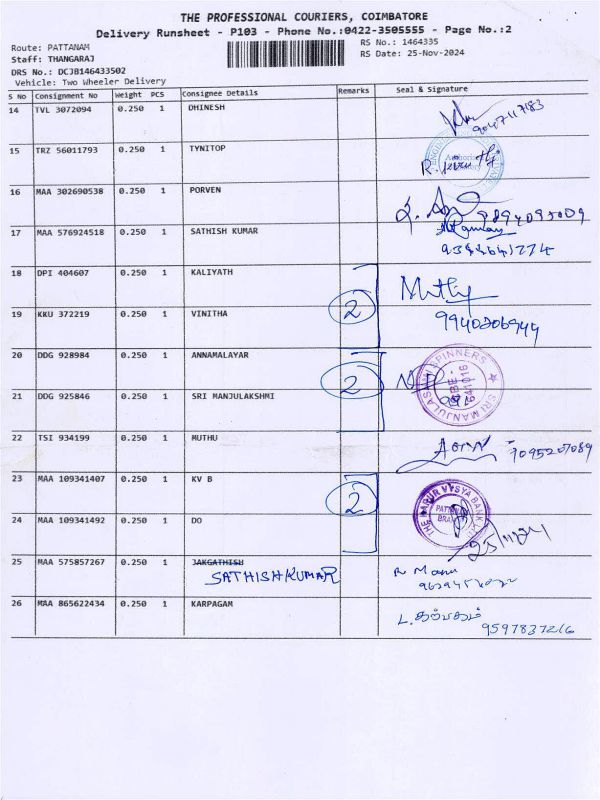 THE PROFESSIONAL COURIERS, COIMBATORE
Delivery Runsheet - P103 - Phone No.:0422-3505555 - Page No.:2
Route: PATTANAM
RS No.: 1464335
Staff: THANGARAJ
RS Date: 25-Nov-2024
DRS No.: DCJB146433502
Vehicle: Two Wheeler Delivery
S No Consignment No Weight PCS Consignee Details Remarks Seal & Signature
14 TVL 3072094 0.250 1 DHINESH
9047117183
15 TRZ 56011793 0.250 1 TYNITOP
16 MAA 302690538 0.250 1 PORVEN
17 MAA 576924518 0.250 1 SATHISH KUMAR
18 DPI 404607 0.250 1 KALIYATH
2
19 KKU 372219 0.250 1 VINITHA
9940206944
20 DDG 928984 0.250 1 ANNAMALAYAR
2
SRI MANJULAKSHMI SPINNERS
21 DDG 925846 0.250 1 SRI MANJULAKSHMI
22 TSI 934199 0.250 1 MUTHU
7095207089
23 MAA 109341407 0.250 1 KV B
2
THE KARUR VYSYA BANK LTD
PATTANAM
BRANCH
24 MAA 109341492 0.250 1 DO
25/11/24
25 MAA 575857267 0.250 1 JAKGATHISH
SATHISHKUMAR
26 MAA 865622434 0.250 1 KARPAGAM
L. கற்பகம்
9597837216